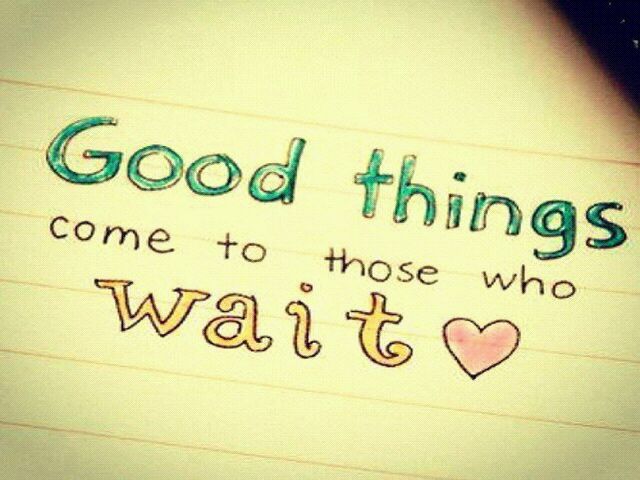 Good things
come to those who
wait